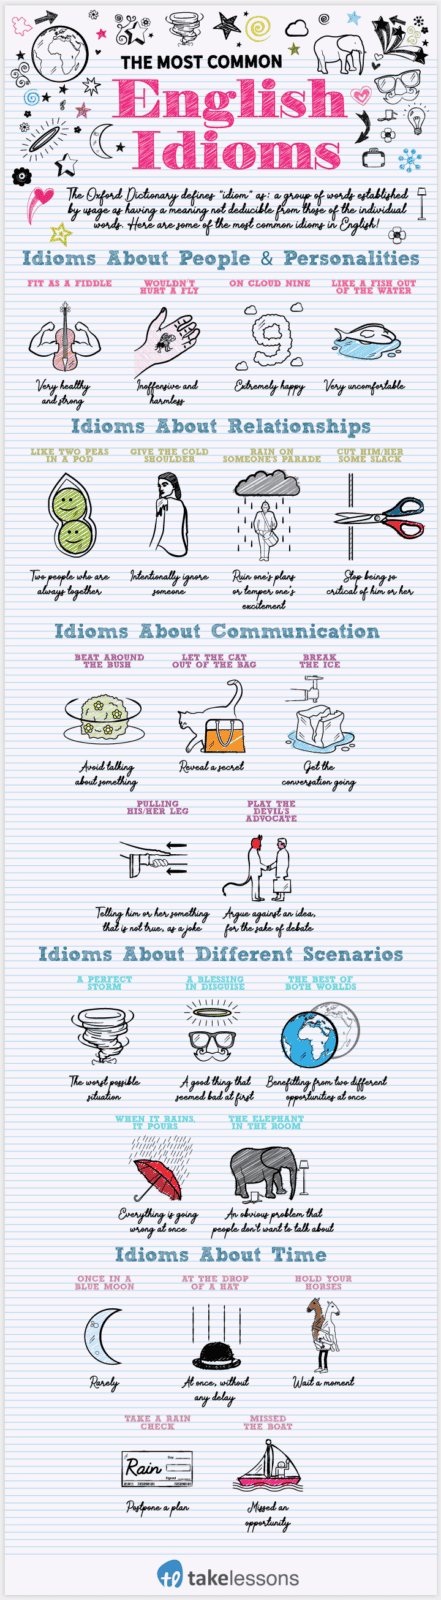 THE MOST COMMON
English
Idioms
The Oxford Dictionary defines "idiom" as: a group of words established
by usage as having a meaning not deducible from those of the individual
words. Here are some of the most common idioms in English!
Idioms About People & Personalities
FIT AS A FIDDLE
Very healthy
and strong
WOULDN'T
HURT A FLY
Inoffensive and
harmless
ON CLOUD NINE
9
Extremely happy
LIKE A FISH OUT
OF THE WATER
Very uncomfortable
Idioms About Relationships
LIKE TWO PEAS
IN A POD
Two people who are
always together
GIVE THE COLD
SHOULDER
Intentionally ignore
someone
RAIN ON
SOMEONE'S PARADE
Ruin one's plans
or temper one's
excitement
CUT HIM/HER
SOME SLACK
Stop being so
critical of him or her
Idioms About Communication
BEAT AROUND
THE BUSH
Avoid talking
about something
LET THE CAT
OUT OF THE BAG
Reveal a secret
BREAK
THE ICE
Get the
conversation going
PULLING
HIS/HER LEG
Telling him or her something
that is not true, as a joke
PLAY THE
DEVIL'S
ADVOCATE
Argue against an idea,
for the sake of debate
Idioms About Different Scenarios
A PERFECT
STORM
The worst possible
situation
A BLESSING
IN DISGUISE
A good thing that
seemed bad at first
THE BEST OF
BOTH WORLDS
Benefitting from two different
opportunities at once
WHEN IT RAINS,
IT POURS
Everything is going
wrong at once
THE ELEPHANT
IN THE ROOM
An obvious problem that
people don't want to talk about
Idioms About Time
ONCE IN A
BLUE MOON
Rarely
AT THE DROP
OF A HAT
At once, without
any delay
HOLD YOUR
HORSES
Wait a moment
TAKE A RAIN
CHECK
Rain
Postpone a plan
MISSED
THE BOAT
Missed an
opportunity
tl takelessons